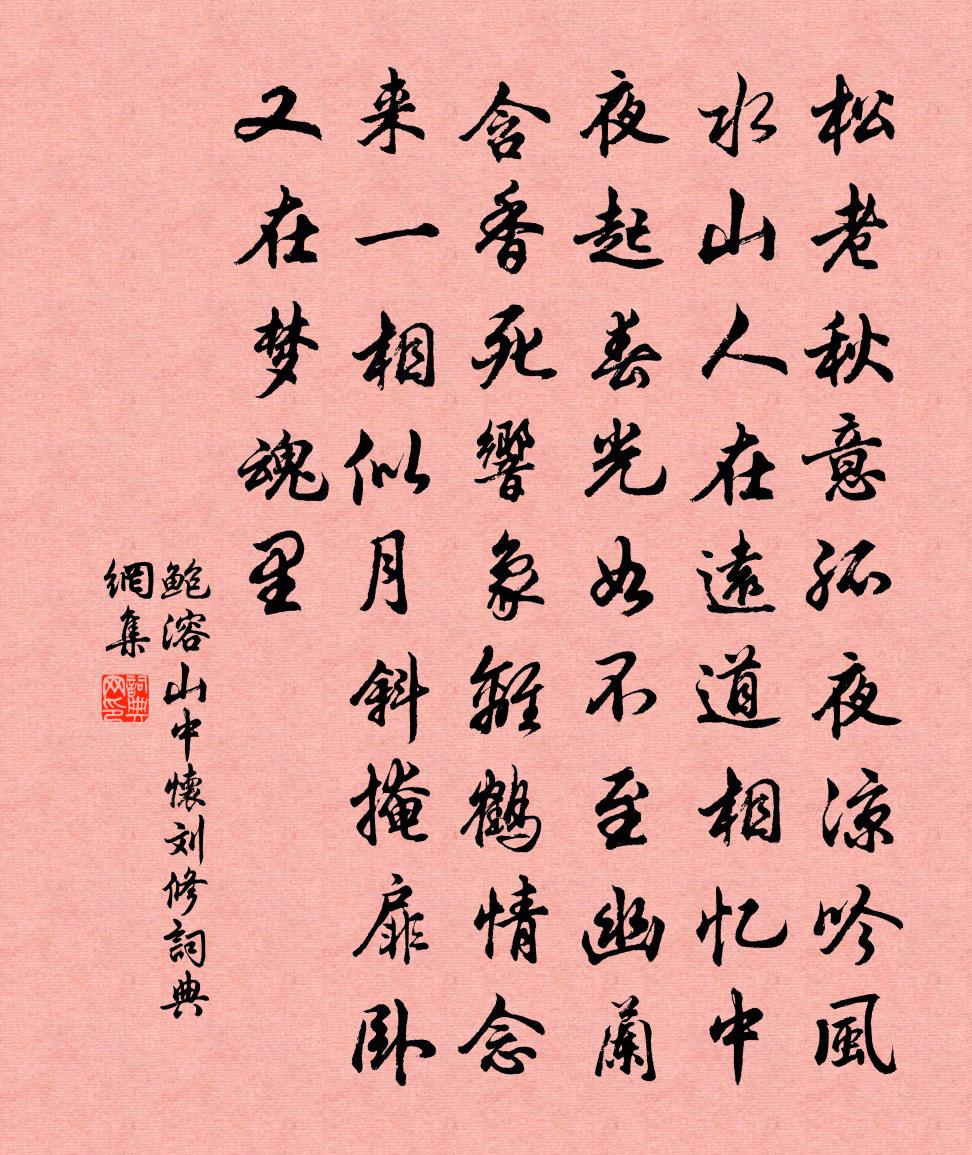 松老秋意孤夜涼吟風
水山人在遠道相忆中
夜起春光如不至幽蘭
含香死響象離鶴情念
来一相似月斜掩扉卧
又在梦魂里
鲍溶山中懷刘修詞典
網集
詞典
网印